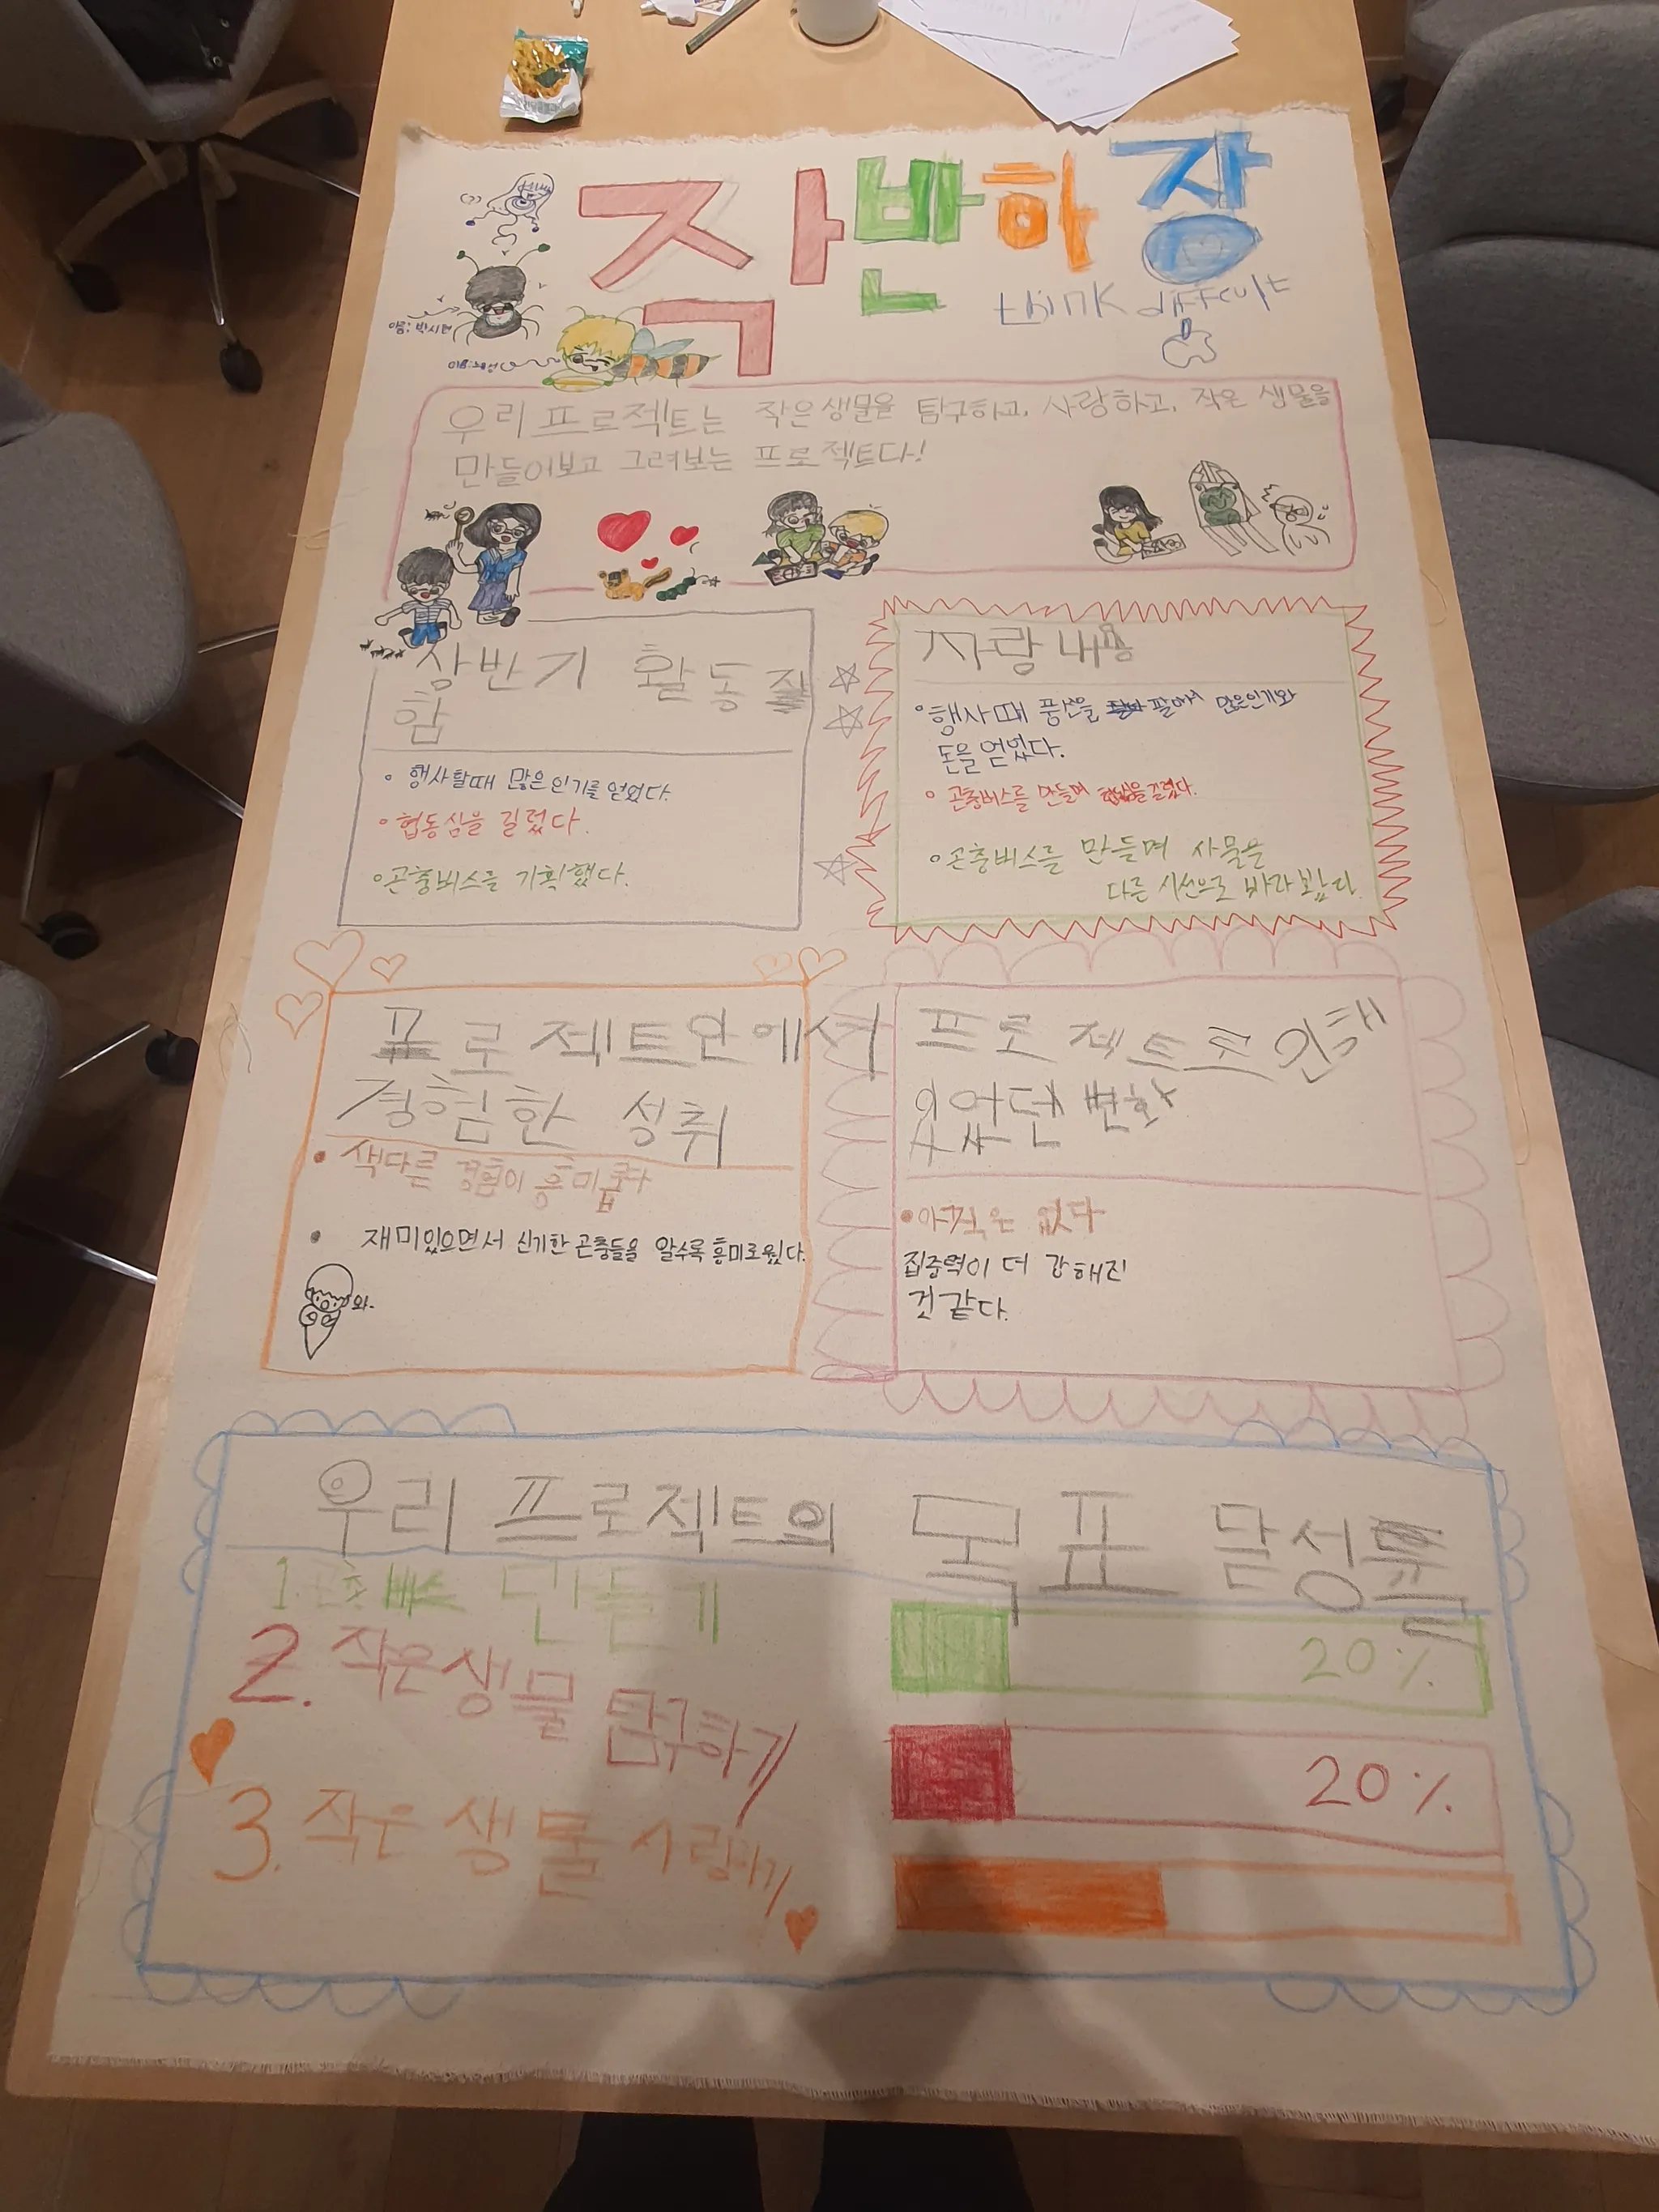 작반하장
think difficult
이름: 박시현
우리 프로젝트는 작은 생물을 탐구하고, 사랑하고, 작은 생물을
만들어보고 그려보는 프로젝트다!
상반기 활동
함
• 행사할때 많은 인기를 얻었다.
• 협동심을 길렀다.
• 곤충버스를 기획했다.
자랑 내용
• 행사때 풍선을 팔아서 많은인기와
돈을 얻었다.
• 곤충버스를 만들며 협동심을 길렀다.
• 곤충버스를 만들며 사물을
다른 시선으로 바라봤다.
프로젝트안에서
경험한 성취
• 색다른 경험이 흥미롭다
• 재미있으면서 신기한 곤충들을 알수록 흥미로웠다.
와-
프로젝트로 인해
있었던 변화
• 아직은 없다
집중력이 더 강해진
것 같다.
우리 프로젝트의 목표 달성률
1. 만들기
20%
2. 작은생물 탐구하기
20%
3. 작은생물 사랑하기